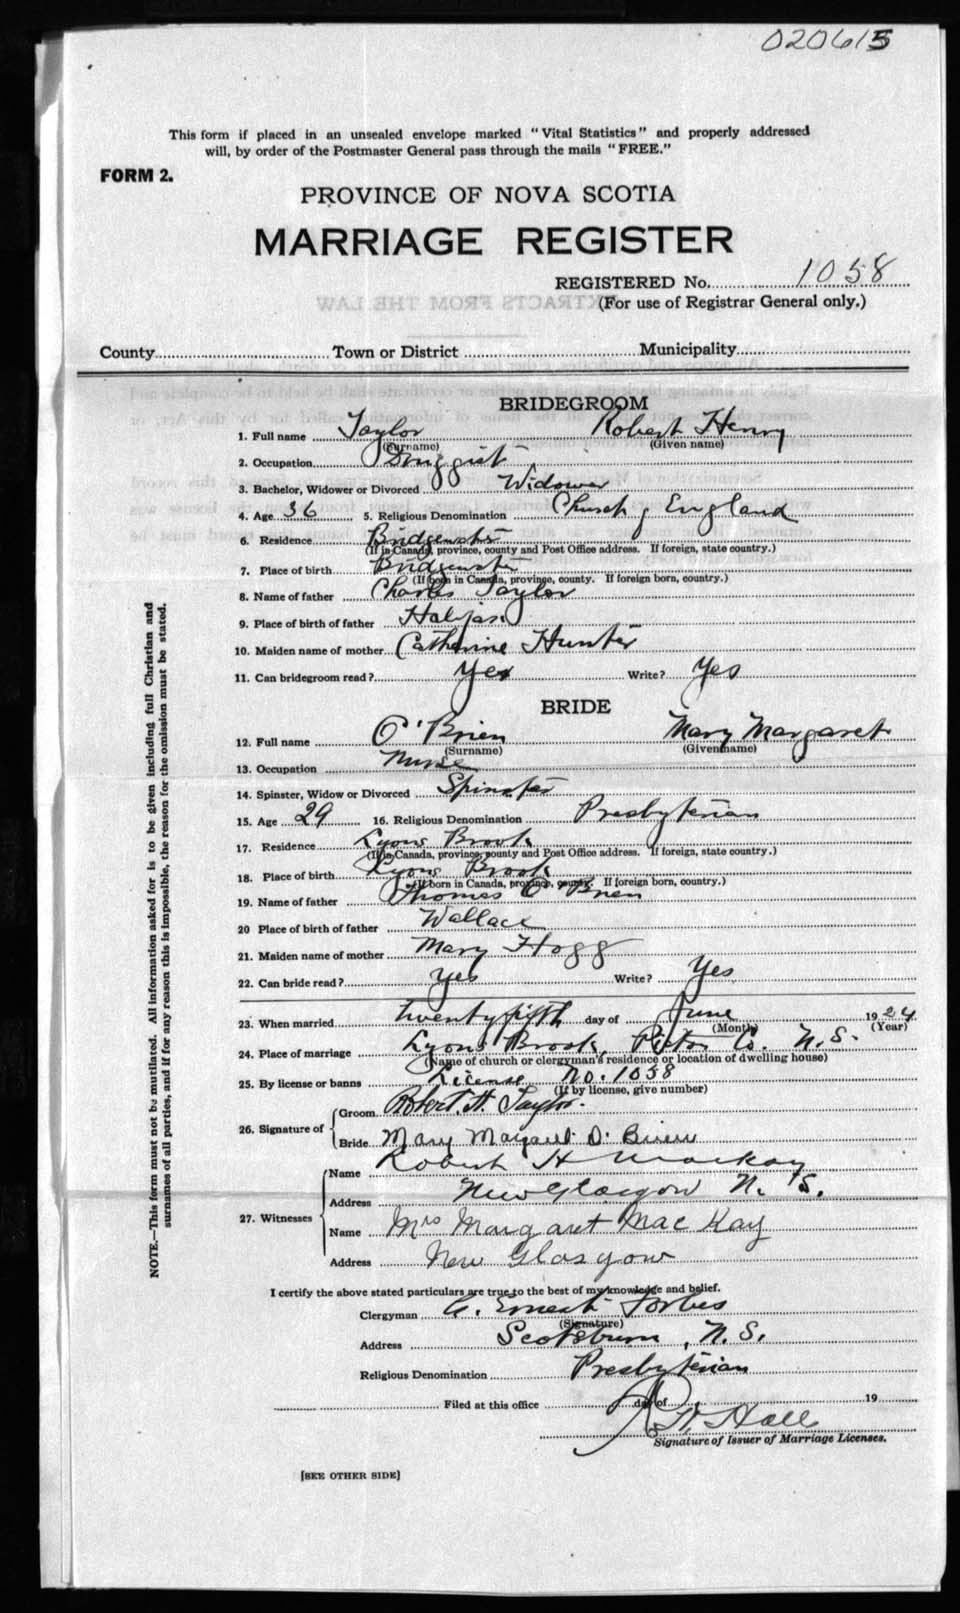 020615
This form if placed in an unsealed envelope marked "Vital Statistics" and properly addressed
will, by order of the Postmaster General pass through the mails "FREE."
FORM 2.
PROVINCE OF NOVA SCOTIA
MARRIAGE REGISTER
REGISTERED No. 1058
(For use of Registrar General only.)
County Town or District Municipality
BRIDEGROOM
1. Full name Taylor Robert Henry
(Surname) (Given name)
2. Occupation Druggist
3. Bachelor, Widower or Divorced Widower
4. Age 36 5. Religious Denomination Church of England
6. Residence Bridgewater
(If in Canada, province, county and Post Office address. If foreign, state country.)
7. Place of birth Bridgewater
(If born in Canada, province, county. If foreign born, country.)
8. Name of father Charles Taylor
9. Place of birth of father Halifax
10. Maiden name of mother Catherine Hunter
11. Can bridegroom read? Yes Write? Yes
BRIDE
12. Full name O'Brien Mary Margaret
(Surname) (Given name)
13. Occupation Nurse
14. Spinster, Widow or Divorced Spinster
15. Age 29 16. Religious Denomination Presbyterian
17. Residence Lyons Brook
(If in Canada, province, county and Post Office address. If foreign, state country.)
18. Place of birth Lyons Brook
(If born in Canada, province, county. If foreign born, country.)
19. Name of father Thomas O'Brien
20 Place of birth of father Wallace
21. Maiden name of mother Mary Hogg
22. Can bride read? Yes Write? Yes
23. When married twenty fifth day of June 1924
(Month) (Year)
24. Place of marriage Lyons Brook, Pictou Co. N.S.
(Name of church or clergyman's residence or location of dwelling house)
25. By license or banns License No. 1058
(If by license, give number)
26. Signature of Groom Robert H. Taylor.
Bride Mary Margaret O'Brien
27. Witnesses Name Robert H Mackay
Address New Glasgow N.S.
Name Mrs Margaret MacKay
Address New Glasgow
I certify the above stated particulars are true to the best of my knowledge and belief.
Clergyman A. Ernest Forbes
(Signature)
Address Scotsburn, N.S.
Religious Denomination Presbyterian
Filed at this office day of 19
Hall
Signature of Issuer of Marriage Licenses.
[SEE OTHER SIDE]
NOTE.—This form must not be mutilated. All information asked for is to be given including full Christian and
surnames of all parties, and if for any reason this is impossible, the reason for the omission must be stated.